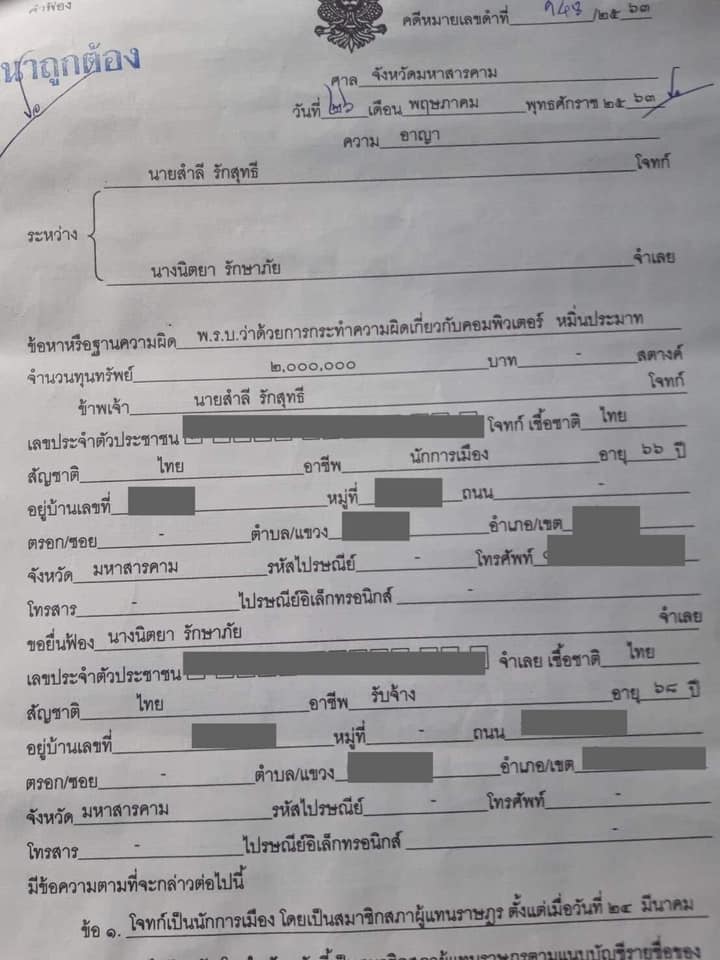 คำฟ้อง
คดีหมายเลขดำที่ /๒๕ ๖๓
นาถูกต้อง
ศาล จังหวัดมหาสารคาม
วันที่ ๒๖ เดือน พฤษภาคม พุทธศักราช ๒๕ ๖๓
ความ อาญา
นายสำลี รักสุทธี โจทก์
ระหว่าง
นางนิตยา รักษาภัย จำเลย
ข้อหาหรือฐานความผิด พ.ร.บ.ว่าด้วยการกระทำความผิดเกี่ยวกับคอมพิวเตอร์ หมิ่นประมาท
จำนวนทุนทรัพย์ ๒,๐๐๐,๐๐๐ บาท - สตางค์
ข้าพเจ้า นายสำลี รักสุทธี โจทก์
เลขประจำตัวประชาชน โจทก์ เชื้อชาติ ไทย
สัญชาติ ไทย อาชีพ นักการเมือง อายุ ๖๖ ปี
อยู่บ้านเลขที่ หมู่ที่ ถนน -
ตรอก/ซอย - ตำบล/แขวง อำเภอ/เขต
จังหวัด มหาสารคาม รหัสไปรษณีย์ - โทรศัพท์
โทรสาร - ไปรษณีย์อิเล็กทรอนิกส์ -
ขอยื่นฟ้อง นางนิตยา รักษาภัย จำเลย
เลขประจำตัวประชาชน จำเลย เชื้อชาติ ไทย
สัญชาติ ไทย อาชีพ รับจ้าง อายุ ๖๘ ปี
อยู่บ้านเลขที่ หมู่ที่ - ถนน
ตรอก/ซอย - ตำบล/แขวง อำเภอ/เขต
จังหวัด มหาสารคาม รหัสไปรษณีย์ - โทรศัพท์ -
โทรสาร - ไปรษณีย์อิเล็กทรอนิกส์ -
มีข้อความตามที่จะกล่าวต่อไปนี้
ข้อ ๑. โจทก์เป็นนักการเมือง โดยเป็นสมาชิกสภาผู้แทนราษฎร ตั้งแต่เมื่อวันที่ ๒๔ มีนาคม
นี้เป็นสมาชิกสภาผู้แทนราษฎรตามแบบบัญชีรายชื่อของ